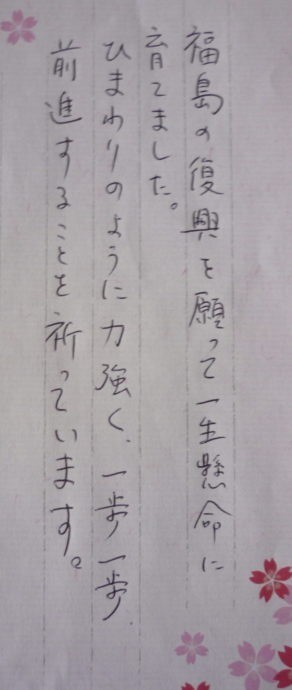 福島の復興を願って一生懸命に
育てました。
ひまわりのように力強く、一歩一歩
前進することを祈っています。